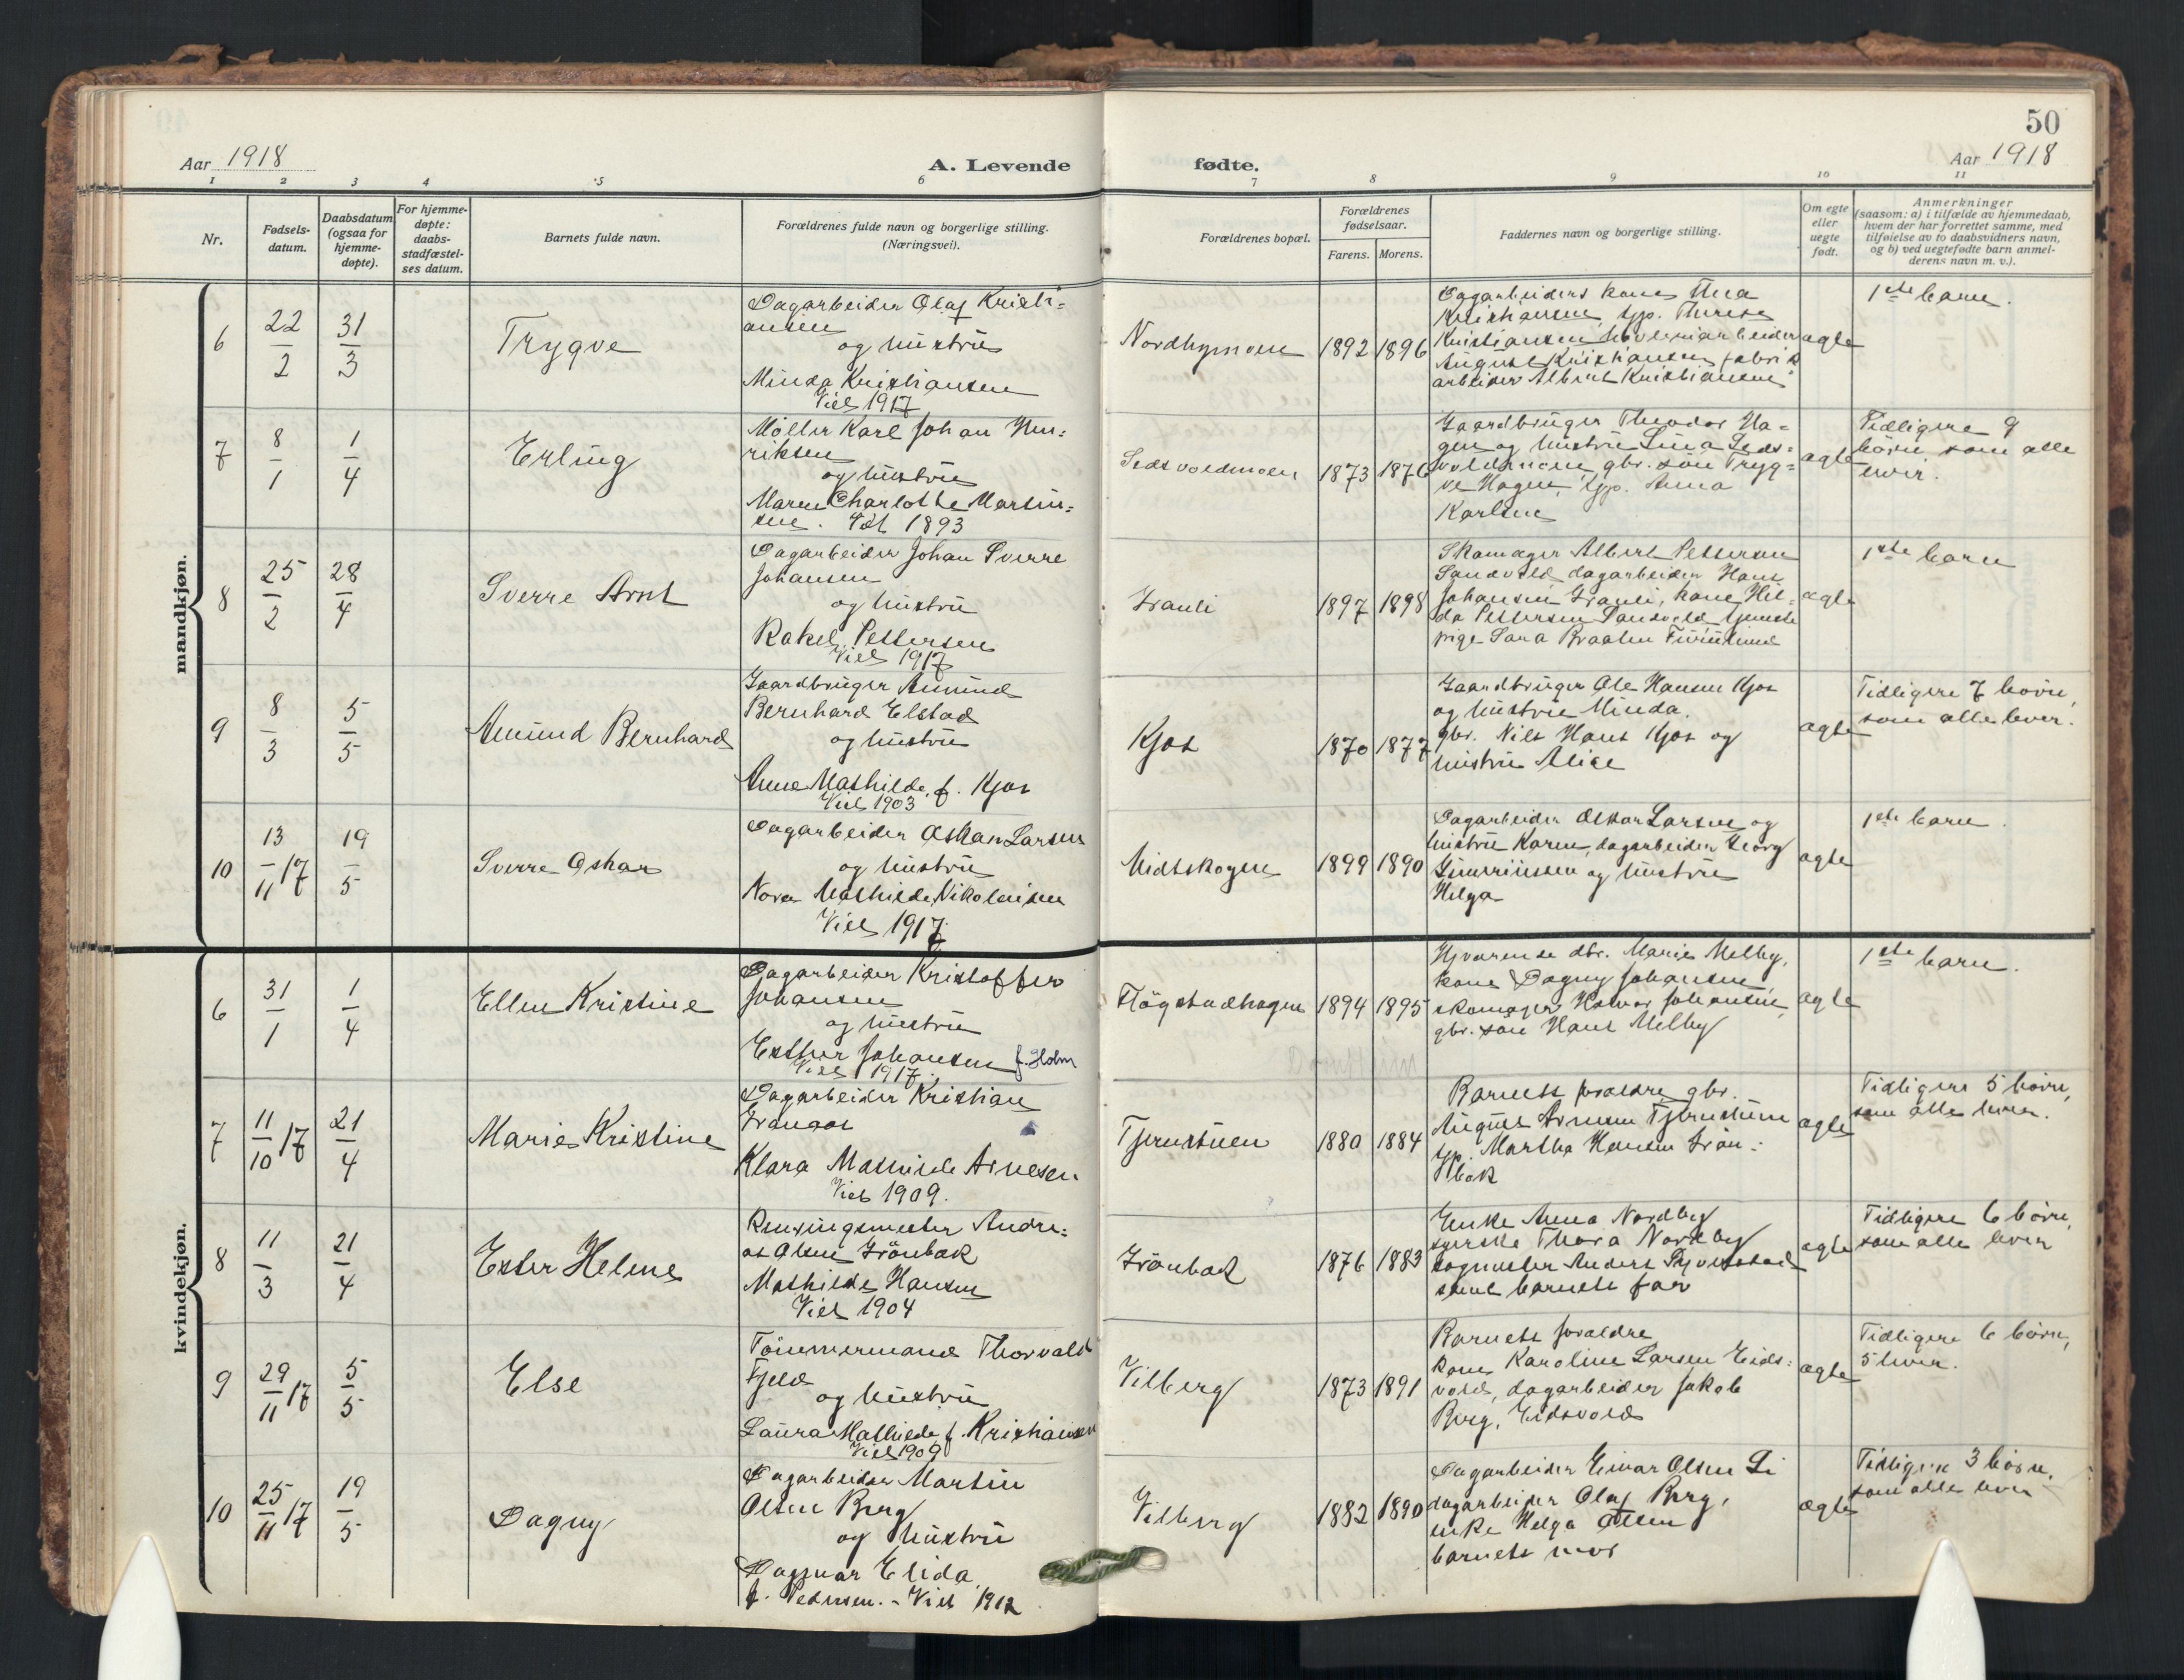 50
Aar 1918
A. Levende
fødte.
Aar 1918
1 2 3 4 5 6 7 8 9 10 11
Nr.
Fødsels-
datum.
Daabsdatum
(ogsaa for
hjemme-
døpte).
For hjemme-
døpte:
daabs-
stadfæstel-
ses datum.
Barnets fulde navn.
Forældrenes fulde navn og borgerlige stilling.
(Næringsvei).
Forældrenes bopæl.
Forældrenes
fødselsaar.
Farens. Morens.
Faddernes navn og borgerlige stilling.
Om egte
eller
uegte
født.
Anmerkninger
(saasom: a) i tilfælde av hjemmedaab,
hvem der har forrettet samme, med
tilføielse av to daabsvidners navn,
og b) ved uegtefødte barn anmel-
derens navn m. v.).
mandkjøn.
6
22/2
31/3
Trygve
Dagarbeider Olaf Kristi-
ansen
og hustru
Minda Kristiansen
Viet 1917
Nordhymoen
1892 1896
Dagarbeiders kone Thea
Kristiansen, tjp. Therese
Kristiansen, arbeider
August Kristiansen, fabrik
arbeider Albert Kristiansen
egte
1ste barn.
7
8/1
1/4
Erling
Møller Karl Johan Hen-
riksen
og hustru
Maren Charlotte Martin-
sen. Viet 1893
Eidsvoldmoen
1873 1876
Gaardbruger Theodor Ha-
gen og hustru Lina Eids-
voldmoen, gbr. søn Tryg-
ve Hagen, tjp. Anna
Karlsen
egte
Tidligere 9
børn, som alle
lever.
8
25/2
28/4
Sverre Arnt
Dagarbeider Johan Sverre
Johansen
og hustru
Rakel Pettersen
Viet 1917
Grauli
1897 1898
Skomager Albert Pettersen
Sandvold, dagarbeider Hans
Johansen Grauli, kone Hil-
da Pettersen Sandvold, tjeneste
pige Sara Braaten
egte
1ste barn
9
8/3
5/5
Amund Bernhard
Gaardbruger Amund
Bernhard Elstad
og hustru
Anne Mathilde, f. Kjos
Viet 1903
Kjos
1870 1877
Gaardbruger Ole Hansen Kjos
og hustru Minda,
gbr. Nils Hans Kjos og
hustru Alice
egte
Tidligere 7 børn,
som alle lever.
10
13/11 17
19/5
Sverre Oskar
Dagarbeider Oskar Larsen
og hustru
Nora Mathilde Nikolaisen
Viet 1917
Midtskogen
1899 1890
Dagarbeider Oskar Larsen og
hustru Karen, dagarbeider Georg
og hustru
Helga
egte
1ste barn.
kvindekjøn.
6
31/1
1/4
Ellen Kristine
Dagarbeider Kristoffer
Johansen
og hustru
Esther Johansen f. Holm
Viet 1917.
Fløgstadhagen
1894 1895
Hjværende dtr. Marie Melby,
kone Dagny Johansen,
skomager Johansen,
gbr. søn Hans Melby
egte
1ste barn.
7
11/10 17
21/4
Marie Kristine
Dagarbeider Kristian
Granaas
Klara Mathilde Arnesen
Viet 1909.
Tjernstuen
1880 1884
Barnets foraldre, gbr.
August Arnesen Tjernstuen
tjp. Martha Hansen Grøn-
bæk
egte
Tidligere 5 børn,
som alle lever.
8
11/3
21/4
Ester Helene
Rensningsmester Andre-
as Olsen Grønbæk
Mathilde Hansen
Viet 1904
Grønbæk
1876 1883
Enke Anna Nordby
syerske Thora Nordby
Anders
samt barnets far
egte
Tidligere 6 børn,
som alle lever
9
29/11 17
5/5
Else
Tømmermand Thorvald
Fjeld
og hustru
Laura Mathilde f. Kristiansen
Viet 1909
Vilberg
1873 1891
Barnets foraldre,
kone Karoline Larsen Eids-
vold, dagarbeider Jakob
Berg, Eidsvold
egte
Tidligere 6 børn,
5 lever.
10
25/11 17
19/5
Dagny
Dagarbeider Martin
Olsen Berg
og hustru
Dagmar Elida
f. Pedersen. - Viet 1912
Vilberg
1882 1890
Dagarbeider Einar Olsen Li
dagarbeider Olaf Berg,
enke Helga Olsen
barnets mor
egte
Tidligere 3 børn,
som alle lever